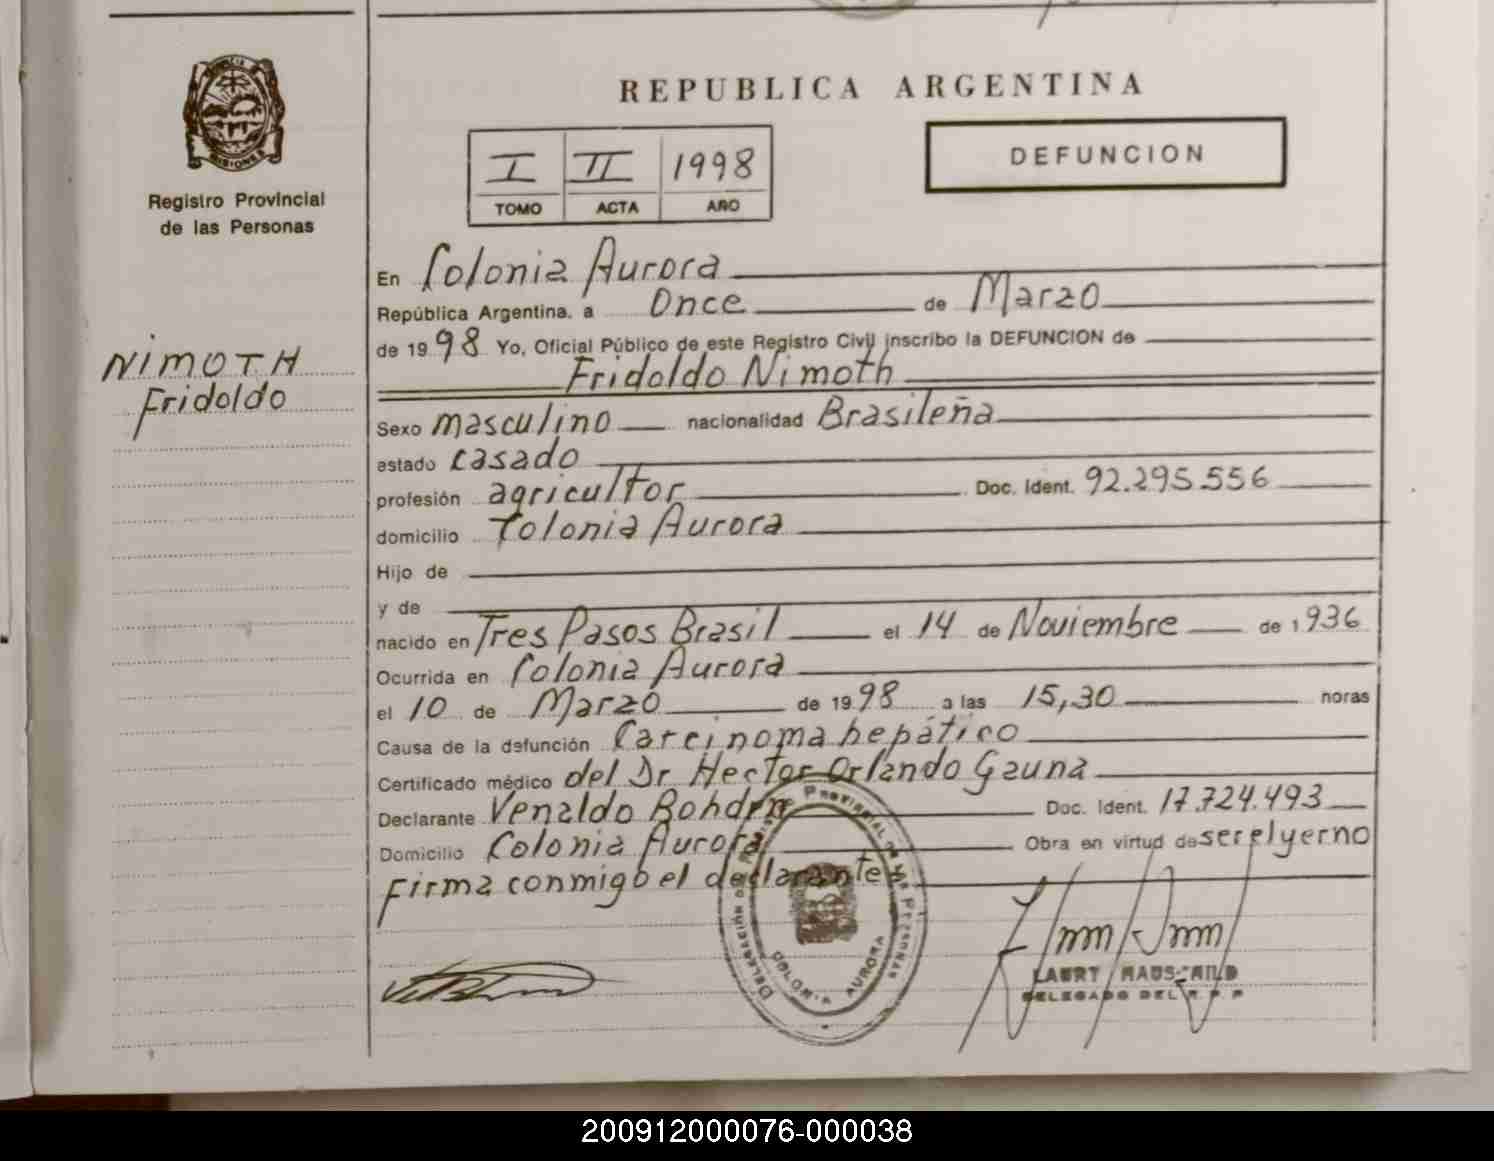 PROVINCIA DE
MISIONES
Registro Provincial
de las Personas
NIMOTH
Fridoldo
REPUBLICA ARGENTINA
I II 1998
TOMO ACTA AÑO
DEFUNCION
En Colonia Aurora
República Argentina, a Once de Marzo
de 1998 Yo, Oficial Público de este Registro Civil inscribo la DEFUNCION de
Fridoldo Nimoth
Sexo masculino nacionalidad Brasileña
estado casado
profesión agricultor Doc. Ident. 92.295.556
domicilio Colonia Aurora
Hijo de
y de
nacido en Tres Pasos Brasil el 14 de Noviembre de 1936
Ocurrida en Colonia Aurora
el 10 de Marzo de 1998 a las 15,30 horas
Causa de la defunción Carcinoma hepático
Certificado médico del Dr Hector Orlando Gauna
Declarante Venaldo Bohdrn Doc. Ident. 17.724.493
Domicilio Colonia Aurora Obra en virtud de ser el yerno
Firma conmigo el declarante
COLONIA AURORA
LAURY HAUSCHILD
DELEGADO DEL R. P. P
200912000076-000038